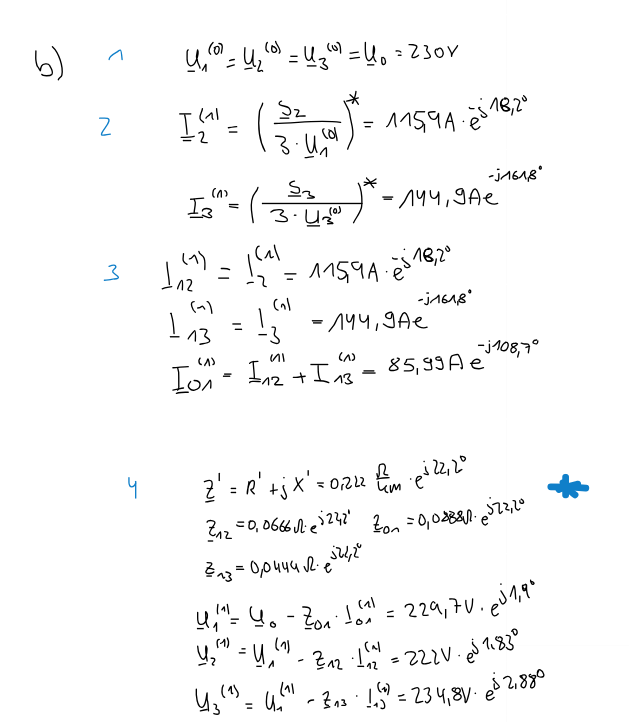 b) 1 U₁⁽⁰⁾ = U₂⁽⁰⁾ = U₃⁽⁰⁾ = U₀ = 230V
2 I₂⁽¹⁾ = (S₂ / 3·U₁⁽⁰⁾)* = 115,9A · e^-j18,2°
I₃⁽¹⁾ = (S₃ / 3·U₃⁽⁰⁾)* = 144,9A e^-j161,8°
3 I₁₂⁽¹⁾ = I₂⁽¹⁾ = 115,9A · e^-j18,2°
I₁₃⁽¹⁾ = I₃⁽¹⁾ = 144,9A e^-j161,8°
I₀₁⁽¹⁾ = I₁₂⁽¹⁾ + I₁₃⁽¹⁾ = 85,99A e^-j108,7°
4 Z' = R' + jX' = 0,222 Ω/km · e^j22,2°
Z₁₂ = 0,0666Ω · e^j22,2° Z₀₁ = 0,0888Ω · e^j22,2°
Z₁₃ = 0,0444Ω · e^j22,2°
U₁⁽¹⁾ = U₀ - Z₀₁ · I₀₁⁽¹⁾ = 229,7V · e^j1,9°
U₂⁽¹⁾ = U₁⁽¹⁾ - Z₁₂ · I₁₂⁽¹⁾ = 222V · e^j1.83°
U₃⁽¹⁾ = U₁⁽¹⁾ - Z₁₃ · I₁₃⁽¹⁾ = 234,8V · e^j2,88°